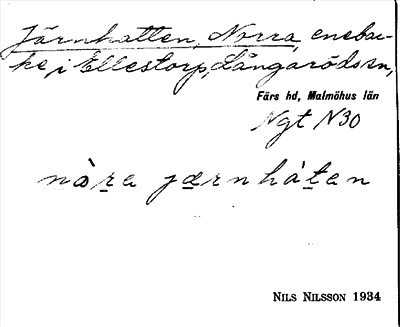 Järnhatten, Norra, enebac-
ke i Ellestorp, Långaröds sn,
Färs hd, Malmöhus län
Ngt N30
nòra jærnhátan
NILS NILSSON 1934